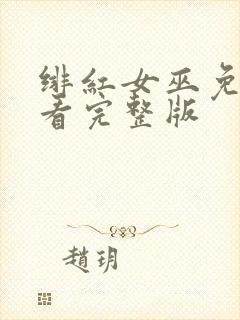 绯红女巫免
看完整版
趙玥